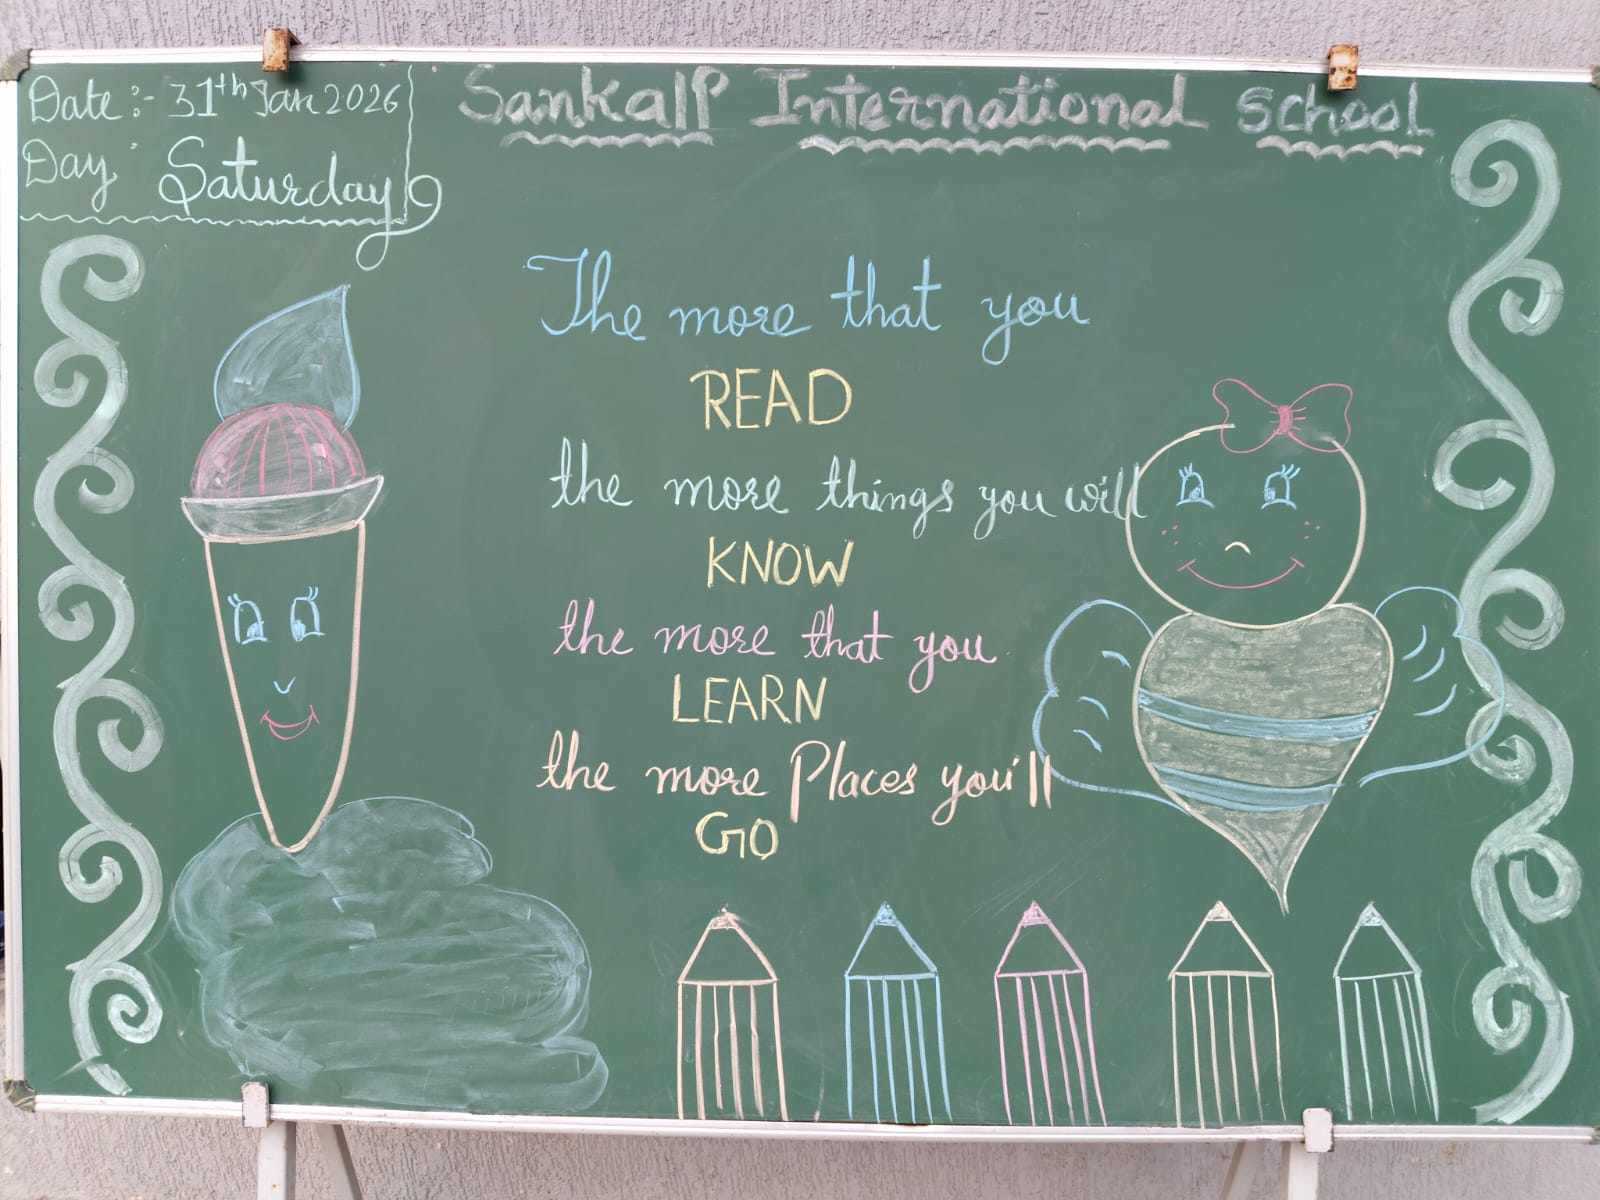 Date :- 31th Jan 2026
Day : Saturday
Sankalp International School
The more that you
READ
the more things you will
KNOW
the more that you
LEARN
the more Places you'll
GO